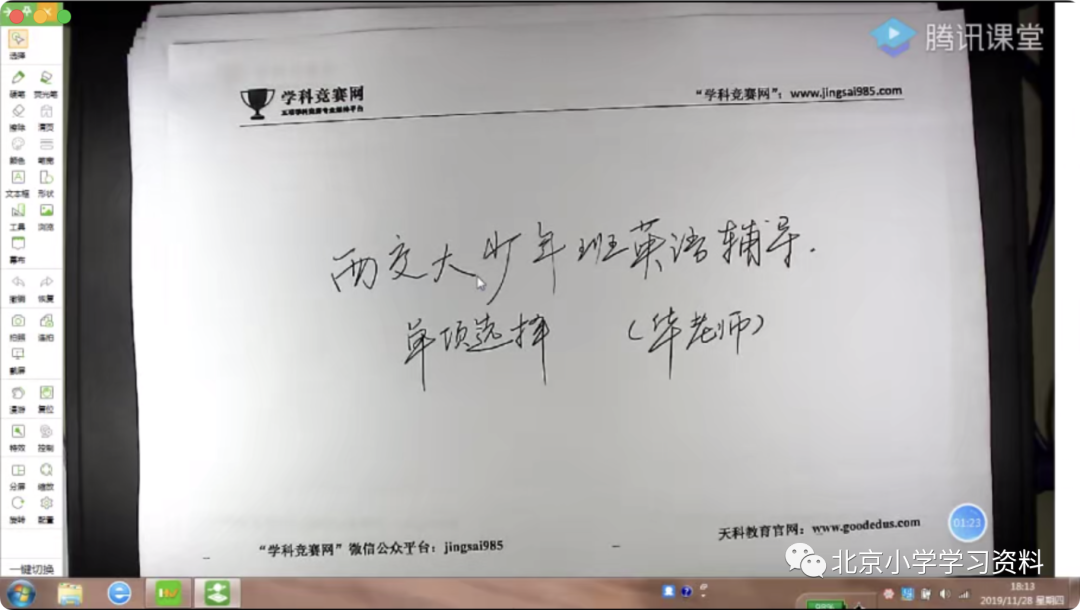 腾讯课堂
学科竞赛网
"学科竞赛网"：www.jingsai985.com
西交大少年班英语辅导.
单项选择 （华老师）
天科教育官网：www.goodedus.com
01:23
"学科竞赛网"微信公众平台：jingsai985
北京小学学习资料
选择
硬笔 荧光笔
擦除 清页
颜色 笔宽
文本框 形状
工具 浏览
幕布
撤销 恢复
拍照 连拍
截屏
漫游 复位
特效 控制
分屏 缩放
旋转 配置
一键切换
18:13
2019/11/28 星期四